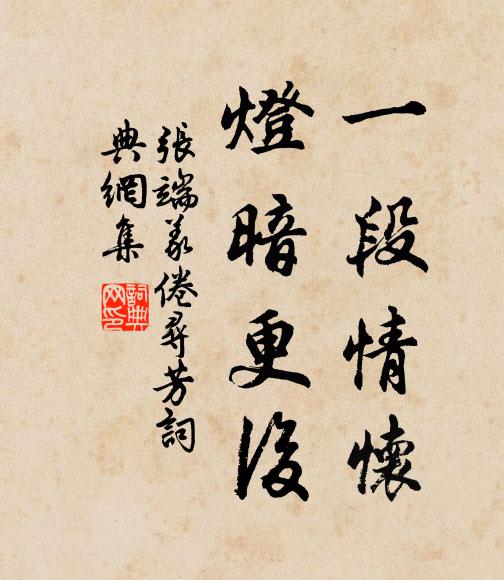 一段情懷
燈暗更後
張端义倦尋芳詞
典網集
詞典
网印